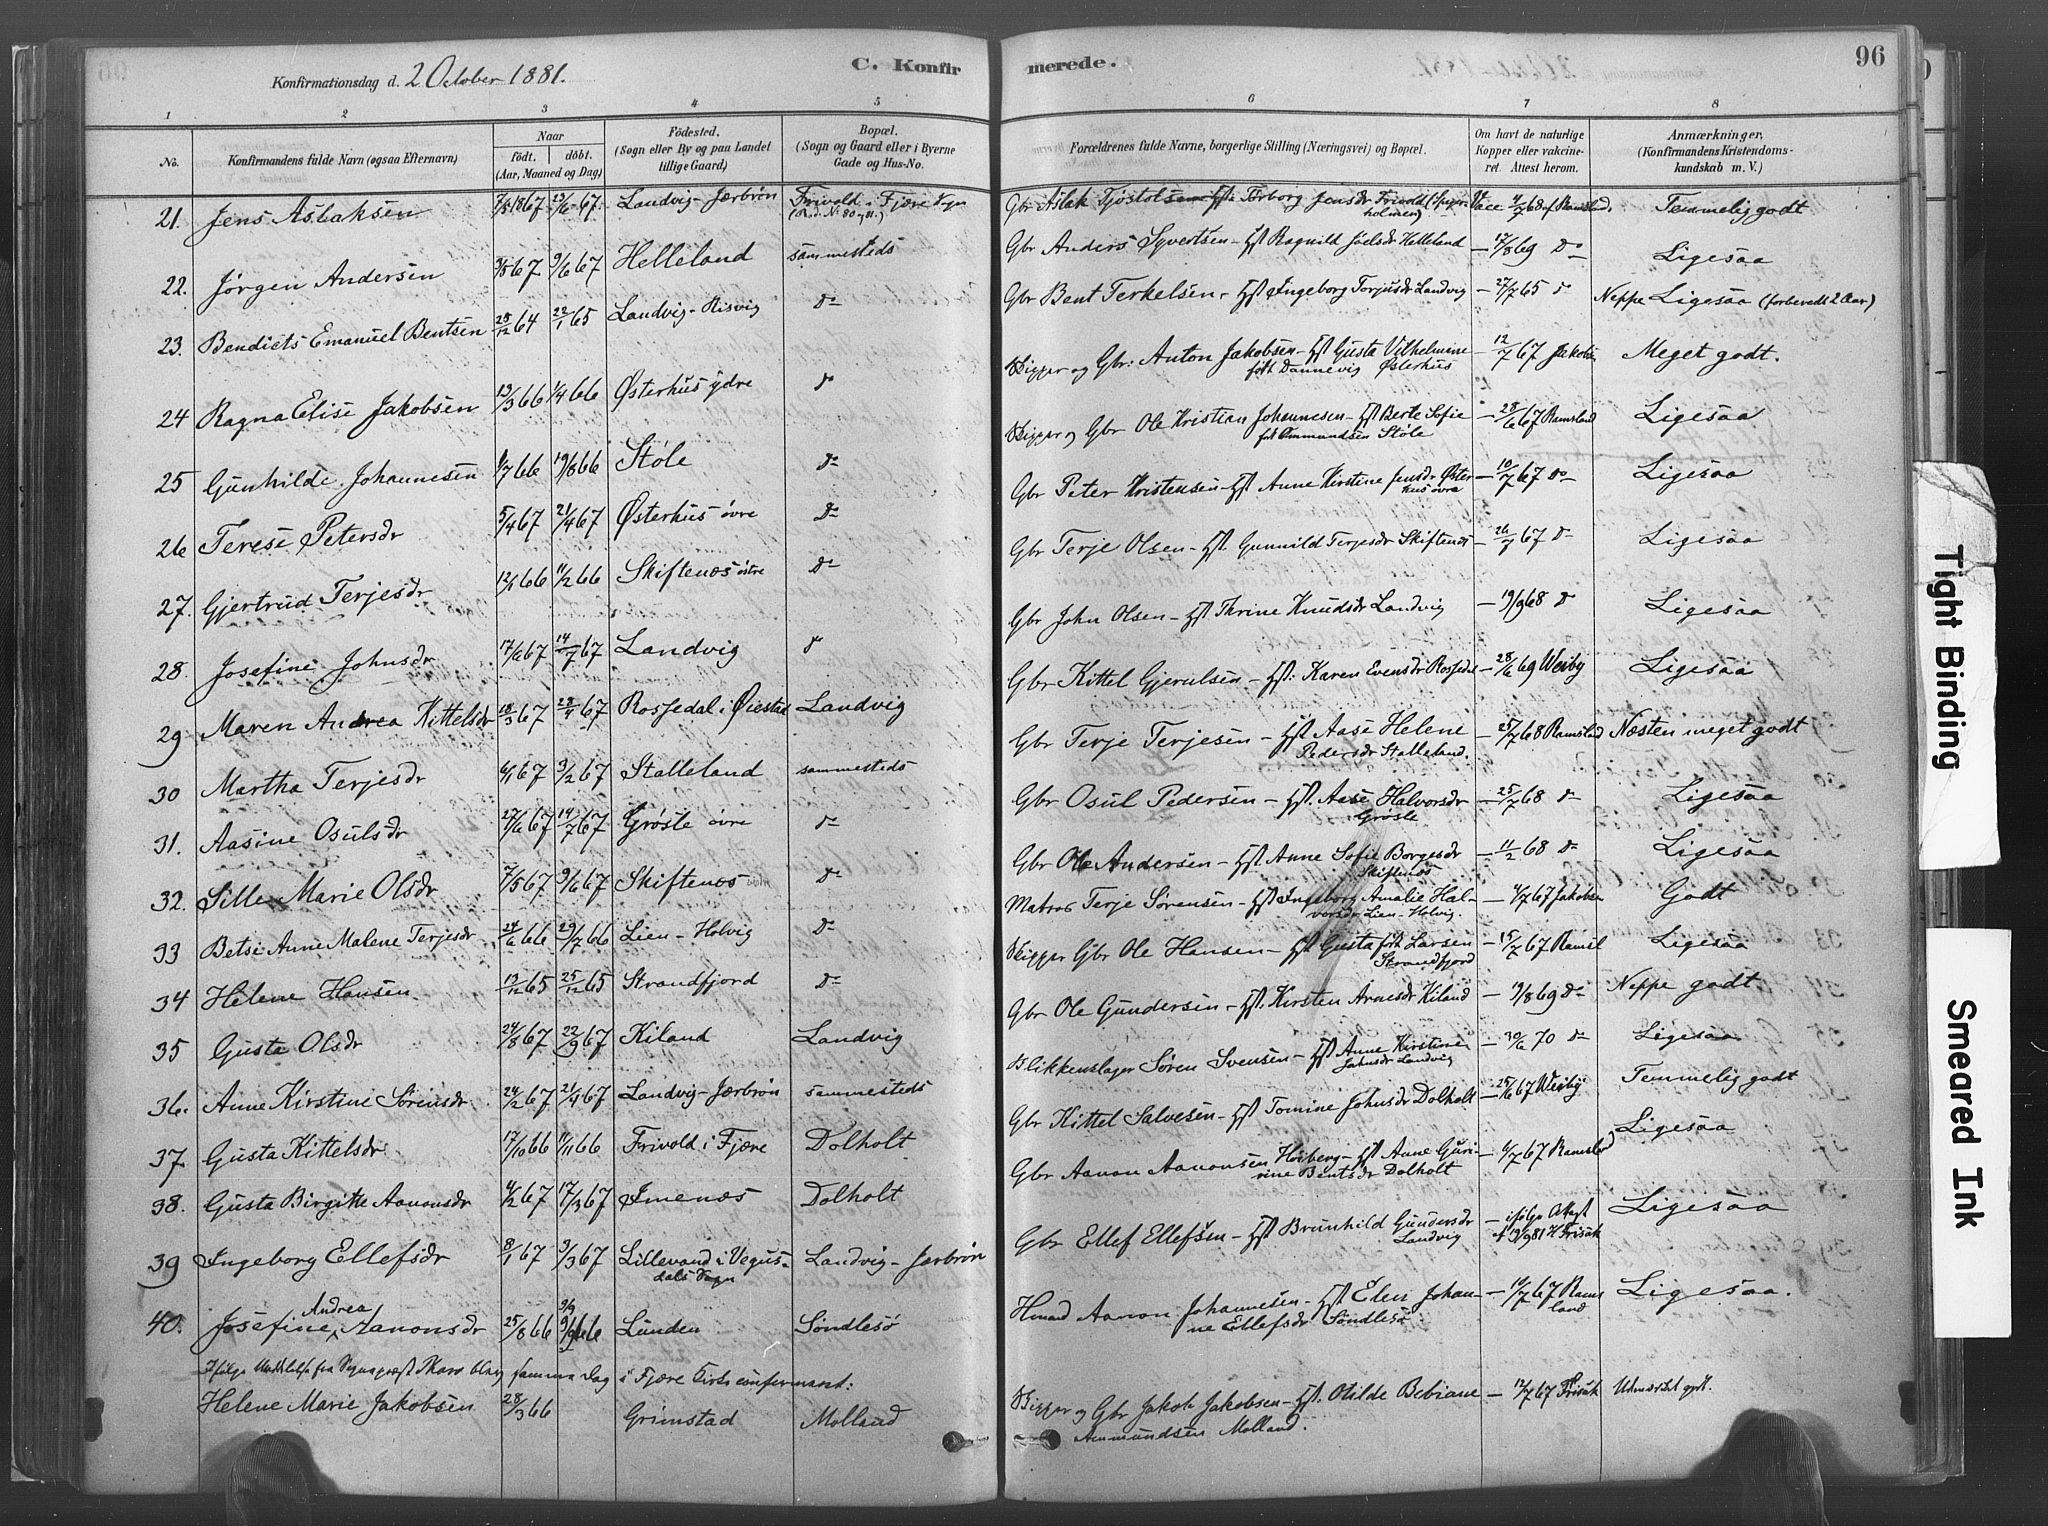 Konfirmationsdag d. 2 October 1881.
C. Konfirmerede.
96
1 2 3 4 5 6 7 8
No.
Konfirmandens fulde Navn (ogsaa Efternavn)
Naar
født. døbt.
(Aar, Maaned og Dag)
Fødested.
(Sogn eller By og paa Landet tillige Gaard)
Bopæl.
(Sogn og Gaard eller i Byerne Gade og Hus-No.
Forældrenes fulde Navne, borgerlige Stilling (Næringsvei) og Bopæl.
Om havt de naturlige Kopper eller vaccineret. Attest herom.
Anmærkninger.
(Konfirmandens Kristendomskundskab m. V.)
21. Jens Aslaksen 67 67 Landvig-Jærbrøn Frivold i Fjære Sogn Gbr Aslak Tjøstolsen Hst Torborg Jensdr Frivold Vacc 68 af Ramsland. Temmelig godt
22. Jørgen Andersen 67 9/6 67 Helleland sammesteds Gbr Anders Syvertsen - Hst Ragnild Joelsdr Helleland - 17/8 69 Do Ligesaa
23. Bendicts Emanuel Bentsen 28/12 64 22/1 65 Landvig-Risvig Do Gbr Bent Terkelsen, Hst Ingeborg Torjusdr Landvig - 27/7 65 Do Neppe Ligesaa (forberedt 2 Aar)
24 Ragna Elise Jakobsen 13/3 66 1/4 66 Østerhus ydre Do Skipper og Gbr. Anton Jakobsen - Hst Gusta Vilhelmine født Dannevig Østerhus - 12/7 67 Jakobsen Meget godt.
25 Gunhilde Johannesen 1/7 66 19/8 66 Støle Do Skipper og Gbr Ole Kristian Johannesen - Hst Berte Sofie født Ommundsen Støle - 28/6 67 Ramsland Ligesaa
26 Terese Petersdr 5/4 67 21/4 67 Østerhus øvre Do Gbr Peter Kristensen - Hst Anne Kirstine Jensdr Østerhus øvre - 10/7 67 Do Ligesaa
27. Gjertrud Terjesdr 12/1 66 11/2 66 Skiftenæs østre Do Gbr Terje Olsen - Hst Gunnild Terjesdr Skiftenæs - 26/7 67 Do Ligesaa
28. Josefine Johnsdr 17/6 67 14/7 67 Landvig Do Gbr John Olsen - Hst Thrine Knudsdr Landvig - 19/9 68 Do Ligesaa
29 Maren Andrea Kittelsdr 18/3 67 28/4 67 Rosfedal i Øiestad Landvig Gbr Kittel Gjerulsen - Hst: Karen Evensdr Rosfedal - 28/6 69 Weiby Ligesaa
30 Martha Terjesdr 67 3/2 67 Stalleland sammesteds Gbr Terje Terjesen - Hst Aase Helene Pedersdr Stalleland. - 25/7 68 Ramsland Næsten meget godt
31. Aasine Osulsdr 27/6 67 14/7 67 Grøsle øvre Do Gbr Osul Pedersen - Hst. Aase Halvorsdr Grøsle - 25/7 68 Do Ligesaa
32. Sille Marie Olsdr 7/5 67 9/6 67 Skiftenæs Do Gbr Ole Andersen - Hst Anne Sofie Borgesdr Skiftenæs - 11/2 68 Do Ligesaa
33 Betsi Anne Malene Terjesdr 24/6 66 29/7 66 Lien-Holvig Do Matros Terje Sørensen - Hst Ingeborg Amalie Halvorsdr Lien-Holvig. - 67 Jakobsen Godt
34 Helene Hansen 13/12 65 25/12 65 Strandfjord Do Skipper Gbr Ole Hansen - Hst Gusta født Larsen Strandfjord - 15/7 67 Ramsl Ligesaa
35 Gusta Olsdr 24/8 67 22/9 67 Kiland Landvig Gbr Ole Gundersen - Hst. Kirsten Arnesdr Kiland - 19/8 69 Do Neppe godt
36. Anne Kirstine Sørensdr 24/2 67 21/4 67 Landvig-Jærbrøn sammesteds Blikkenslager Søren Svensen - Hst Anne Kirstine Jahnsdr Landvig - 30/6 70 Do Ligesaa
37. Gusta Kittelsdr 17/10 66 11/11 66 Frivold i Fjære Dolholt Gbr Kittel Salvesen - Hst Tomine Johnsdr Dolholt - 25/6 67 Weiby Temmelig godt
38. Gusta Birgitte Aanonsdr 4/2 67 17/3 67 Imenæs Dolholt Gbr Aanon Aanonsen Høiberg - Hst Anne Gurine Bentsdr Dolholt - 67 Ramsland Ligesaa
39 Ingeborg Ellefsdr 8/1 67 3/3 67 Lillevand i Vegusdals Sogn Landvig-Jærbrøn Gbr Ellef Ellefsen - Hst Brunhild Gundersdr Landvig - ifølge Attest af 19/9 81 H Frisak Ligesaa
40. Josefine Andrea Aanonsdr 25/8 66 9/9 66 Lunden Søndlesø Hmand Aanon Johannesen - Hst Elen Johanne Ellefsdr Søndlesø - 10/7 67 Ramsland Ligesaa.
Ifølge Meddelelse fra Sognepræst blev samme Dag i Fjære Kirke confirmeret:
Helene Marie Jakobsen 28/3 66 Grimstad Molland Skipper og Gbr Jakob Jakobsen - Hst. Otilde Bebiane Ammundsen Molland. - 12/7 67 Frisak Udmærket godt.
Tight Binding
Smeared Ink